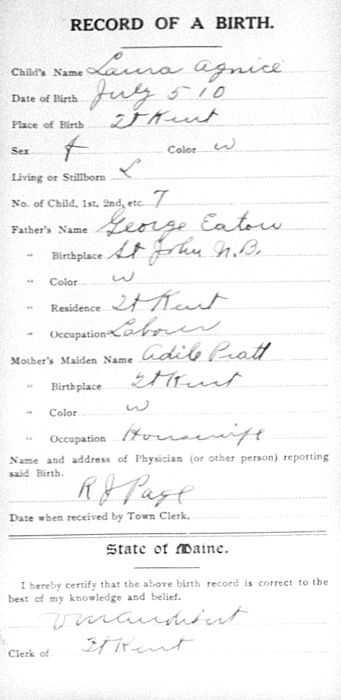 RECORD OF A BIRTH.
Child's Name Laura Agnice
Date of Birth July 5 10
Place of Birth Ft Kent
Sex f Color w
Living or Stillborn L
No. of Child, 1st, 2nd, etc. 7
Father's Name George Eaton
" Birthplace St John N.B.
" Color w
" Residence Ft Kent
" Occupation Labour
Mother's Maiden Name Adile Pratt
" Birthplace Ft Kent
" Color w
" Occupation Housewife
Name and address of Physician (or other person) reporting
said Birth.
R J Page
Date when received by Town Clerk.
State of Maine.
I hereby certify that the above birth record is correct to the
best of my knowledge and belief.
Clerk of Ft Kent